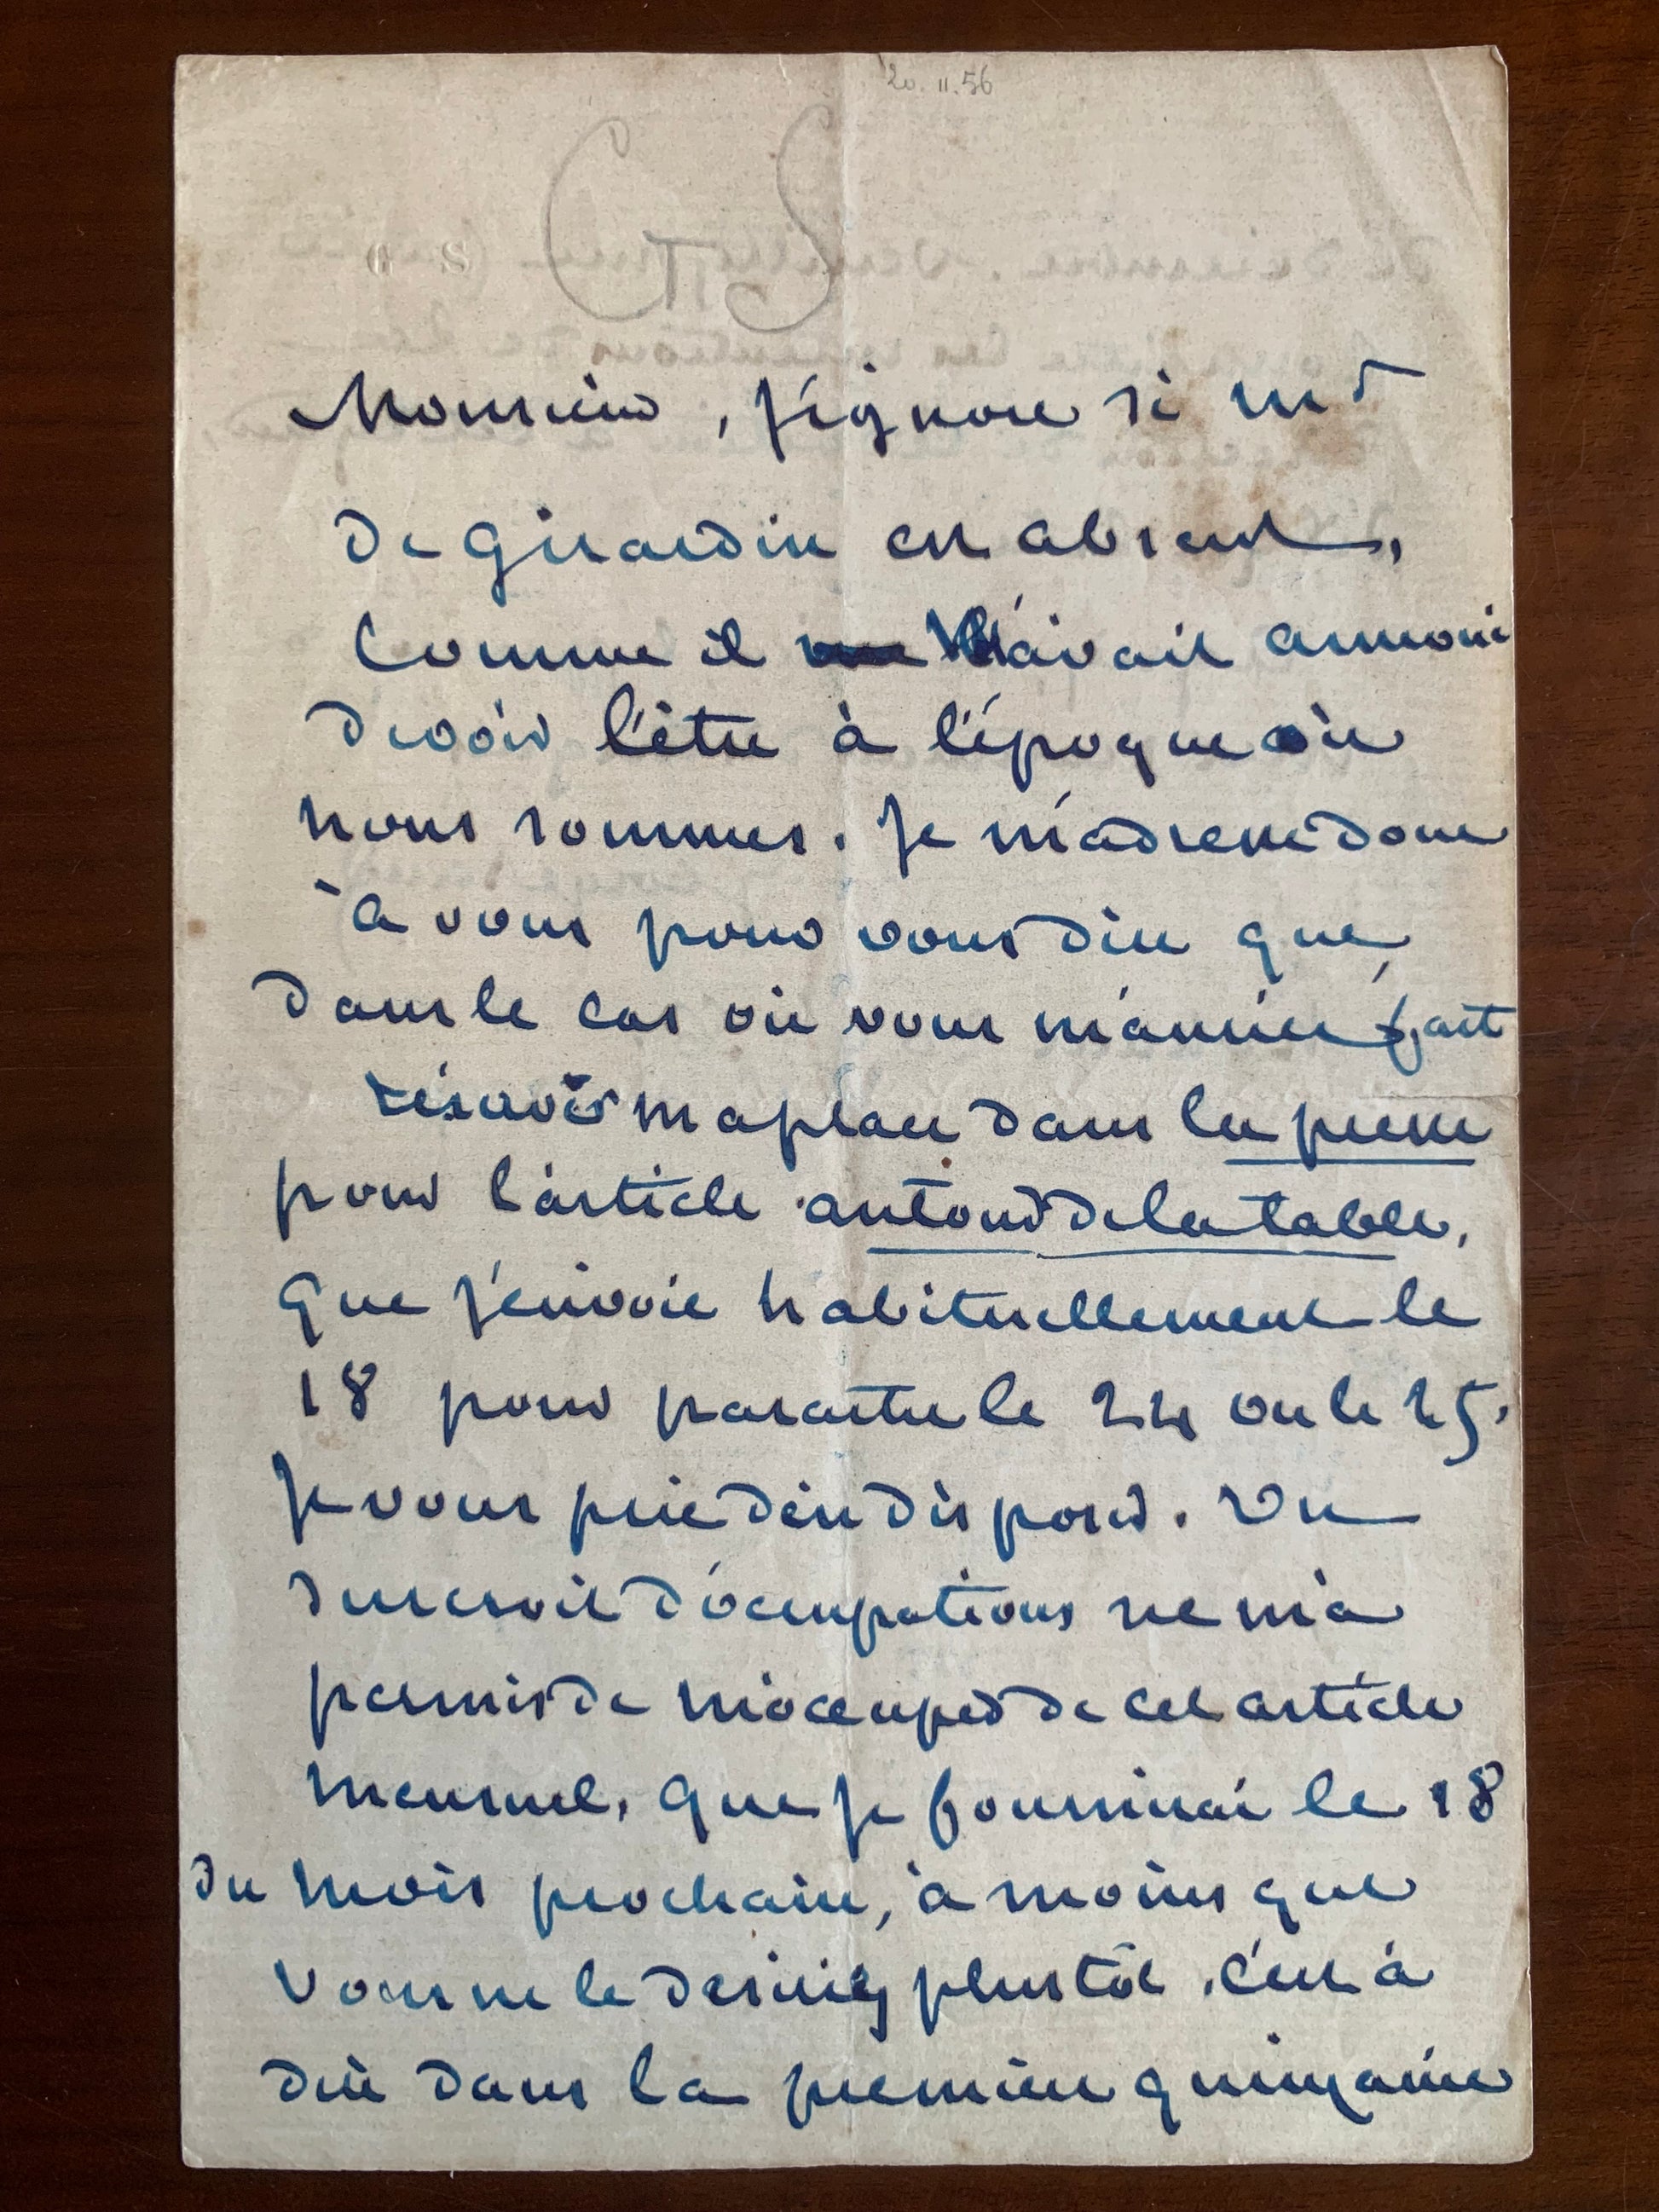 20. 11. 56
GS
G S
Monsieur, j'ignore si mr
de Girardin est absent,
Comme il l'avait annoncé
devoir l'être à l'époque où
nous sommes. Je m'adresse donc
à vous pour vous dire que,
dans le cas où vous m'auriez fait
réserver ma place dans la presse
pour l'article autour de la table,
que j'envoie habituellement le
18 pour paraitre le 24 ou le 25,
je vous prie d'en disposer. Un
surcroit d'occupations ne m'a
permis de m'occuper de cet article
mensuel, que je fournirai le 18
du mois prochain, à moins que
vous ne le desiriez plustôt. C'est à
dire dans la première quinzaine